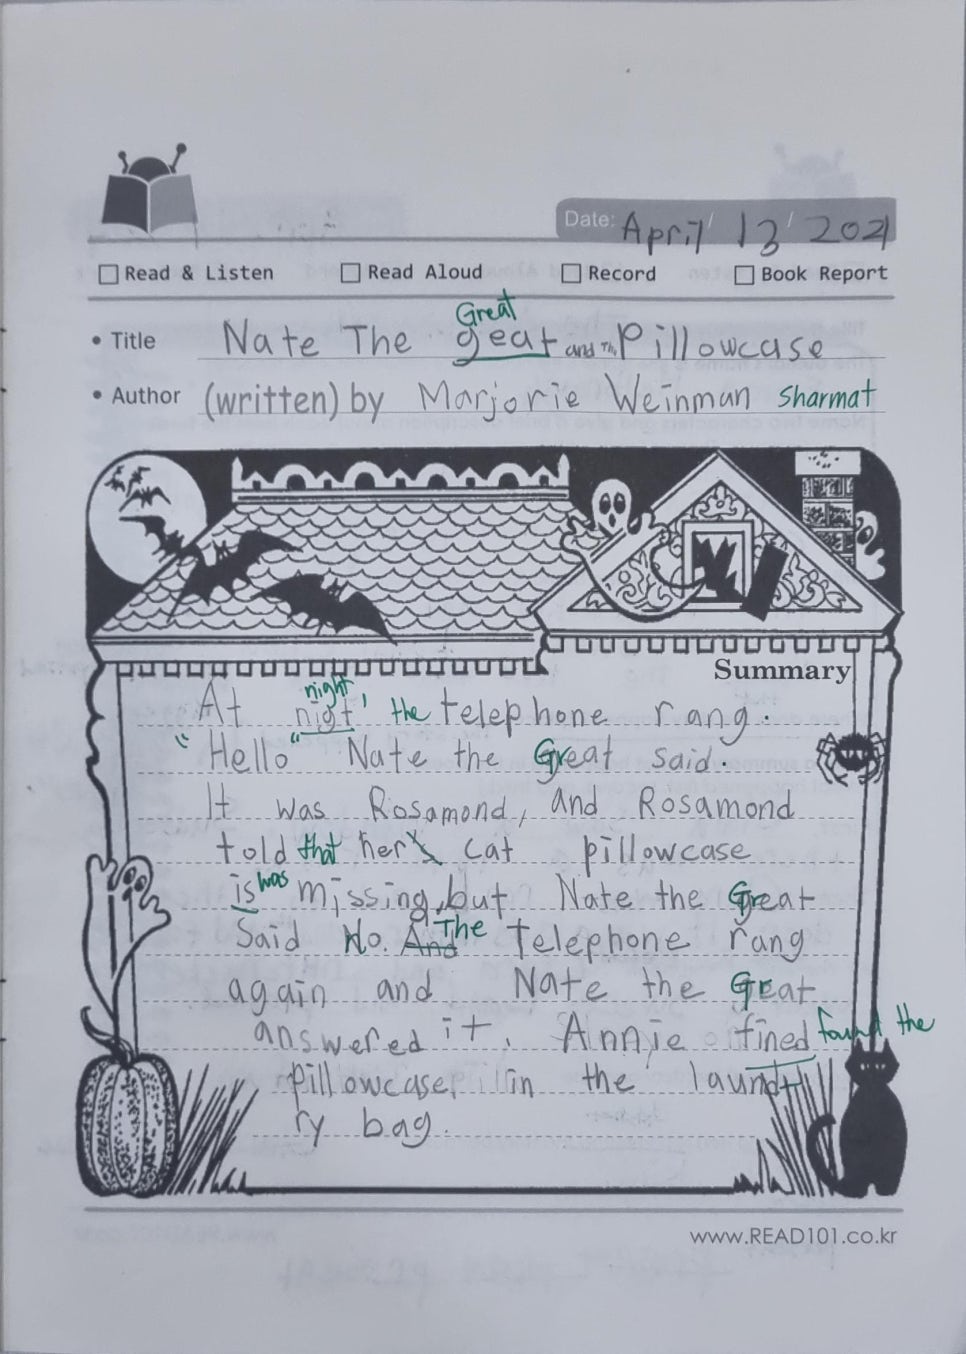 Date: April / 13 / 2021
Read & Listen Read Aloud Record Book Report
Great
• Title Nate The geat and The Pillowcase
• Author (written) by Marjorie Weinman Sharmat
Summary
night,
At nigt the telephone rang.
"Hello" Nate the Great said.
It was Rosamond, and Rosamond
told that her cat pillowcase
is was missing, but Nate the Great
Said No. And The telephone rang
again and Nate the Great
answered it. Annie fined found the
pillowcase in the laund
ry bag.
www.READ101.co.kr